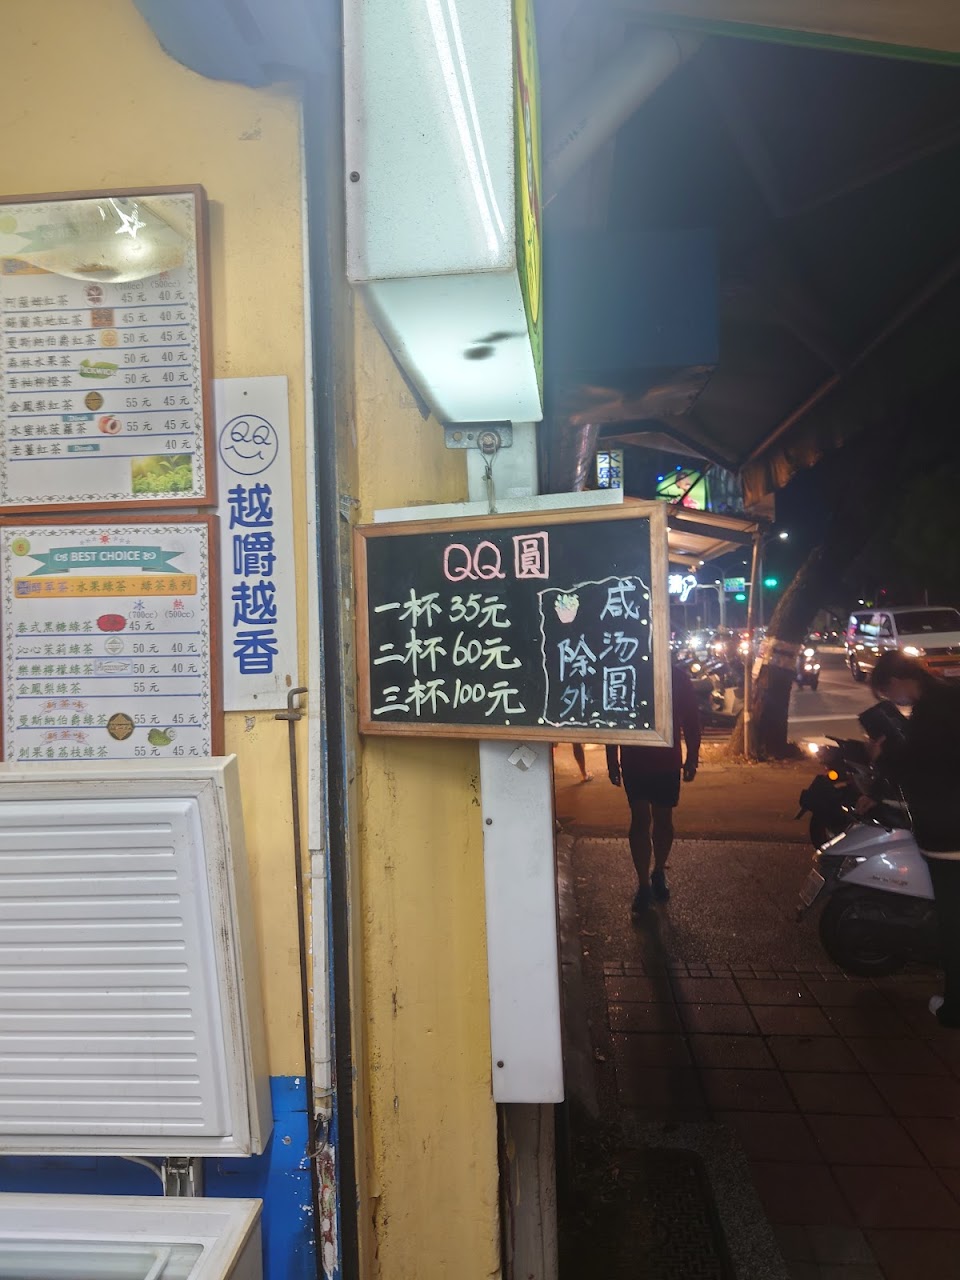 (700cc) (500cc)
阿薩姆紅茶 45元 40元
錫蘭高地紅茶 45元 40元
曼斯納伯爵紅茶 50元 45元
森林水果茶 50元 40元
香柚柳橙茶 PICKWICK 50元 40元
金鳳梨紅茶 55元 45元
水蜜桃菠蘿茶 55元 45元
老薑紅茶 40元
BEST CHOICE
水果綠茶、綠茶系列
冰 熱
(700cc) (500cc)
泰式黑糖綠茶 45元
沁心茉莉綠茶 50元 40元
樂樂檸檬綠茶 50元 40元
金鳳梨綠茶 55元
新茶味
曼斯納伯爵綠茶 55元 45元
新茶味
刺果番荔枝綠茶 55元 45元
QQ
越嚼越香
QQ圓
一杯35元
二杯60元
三杯100元
咸汤圓
除外